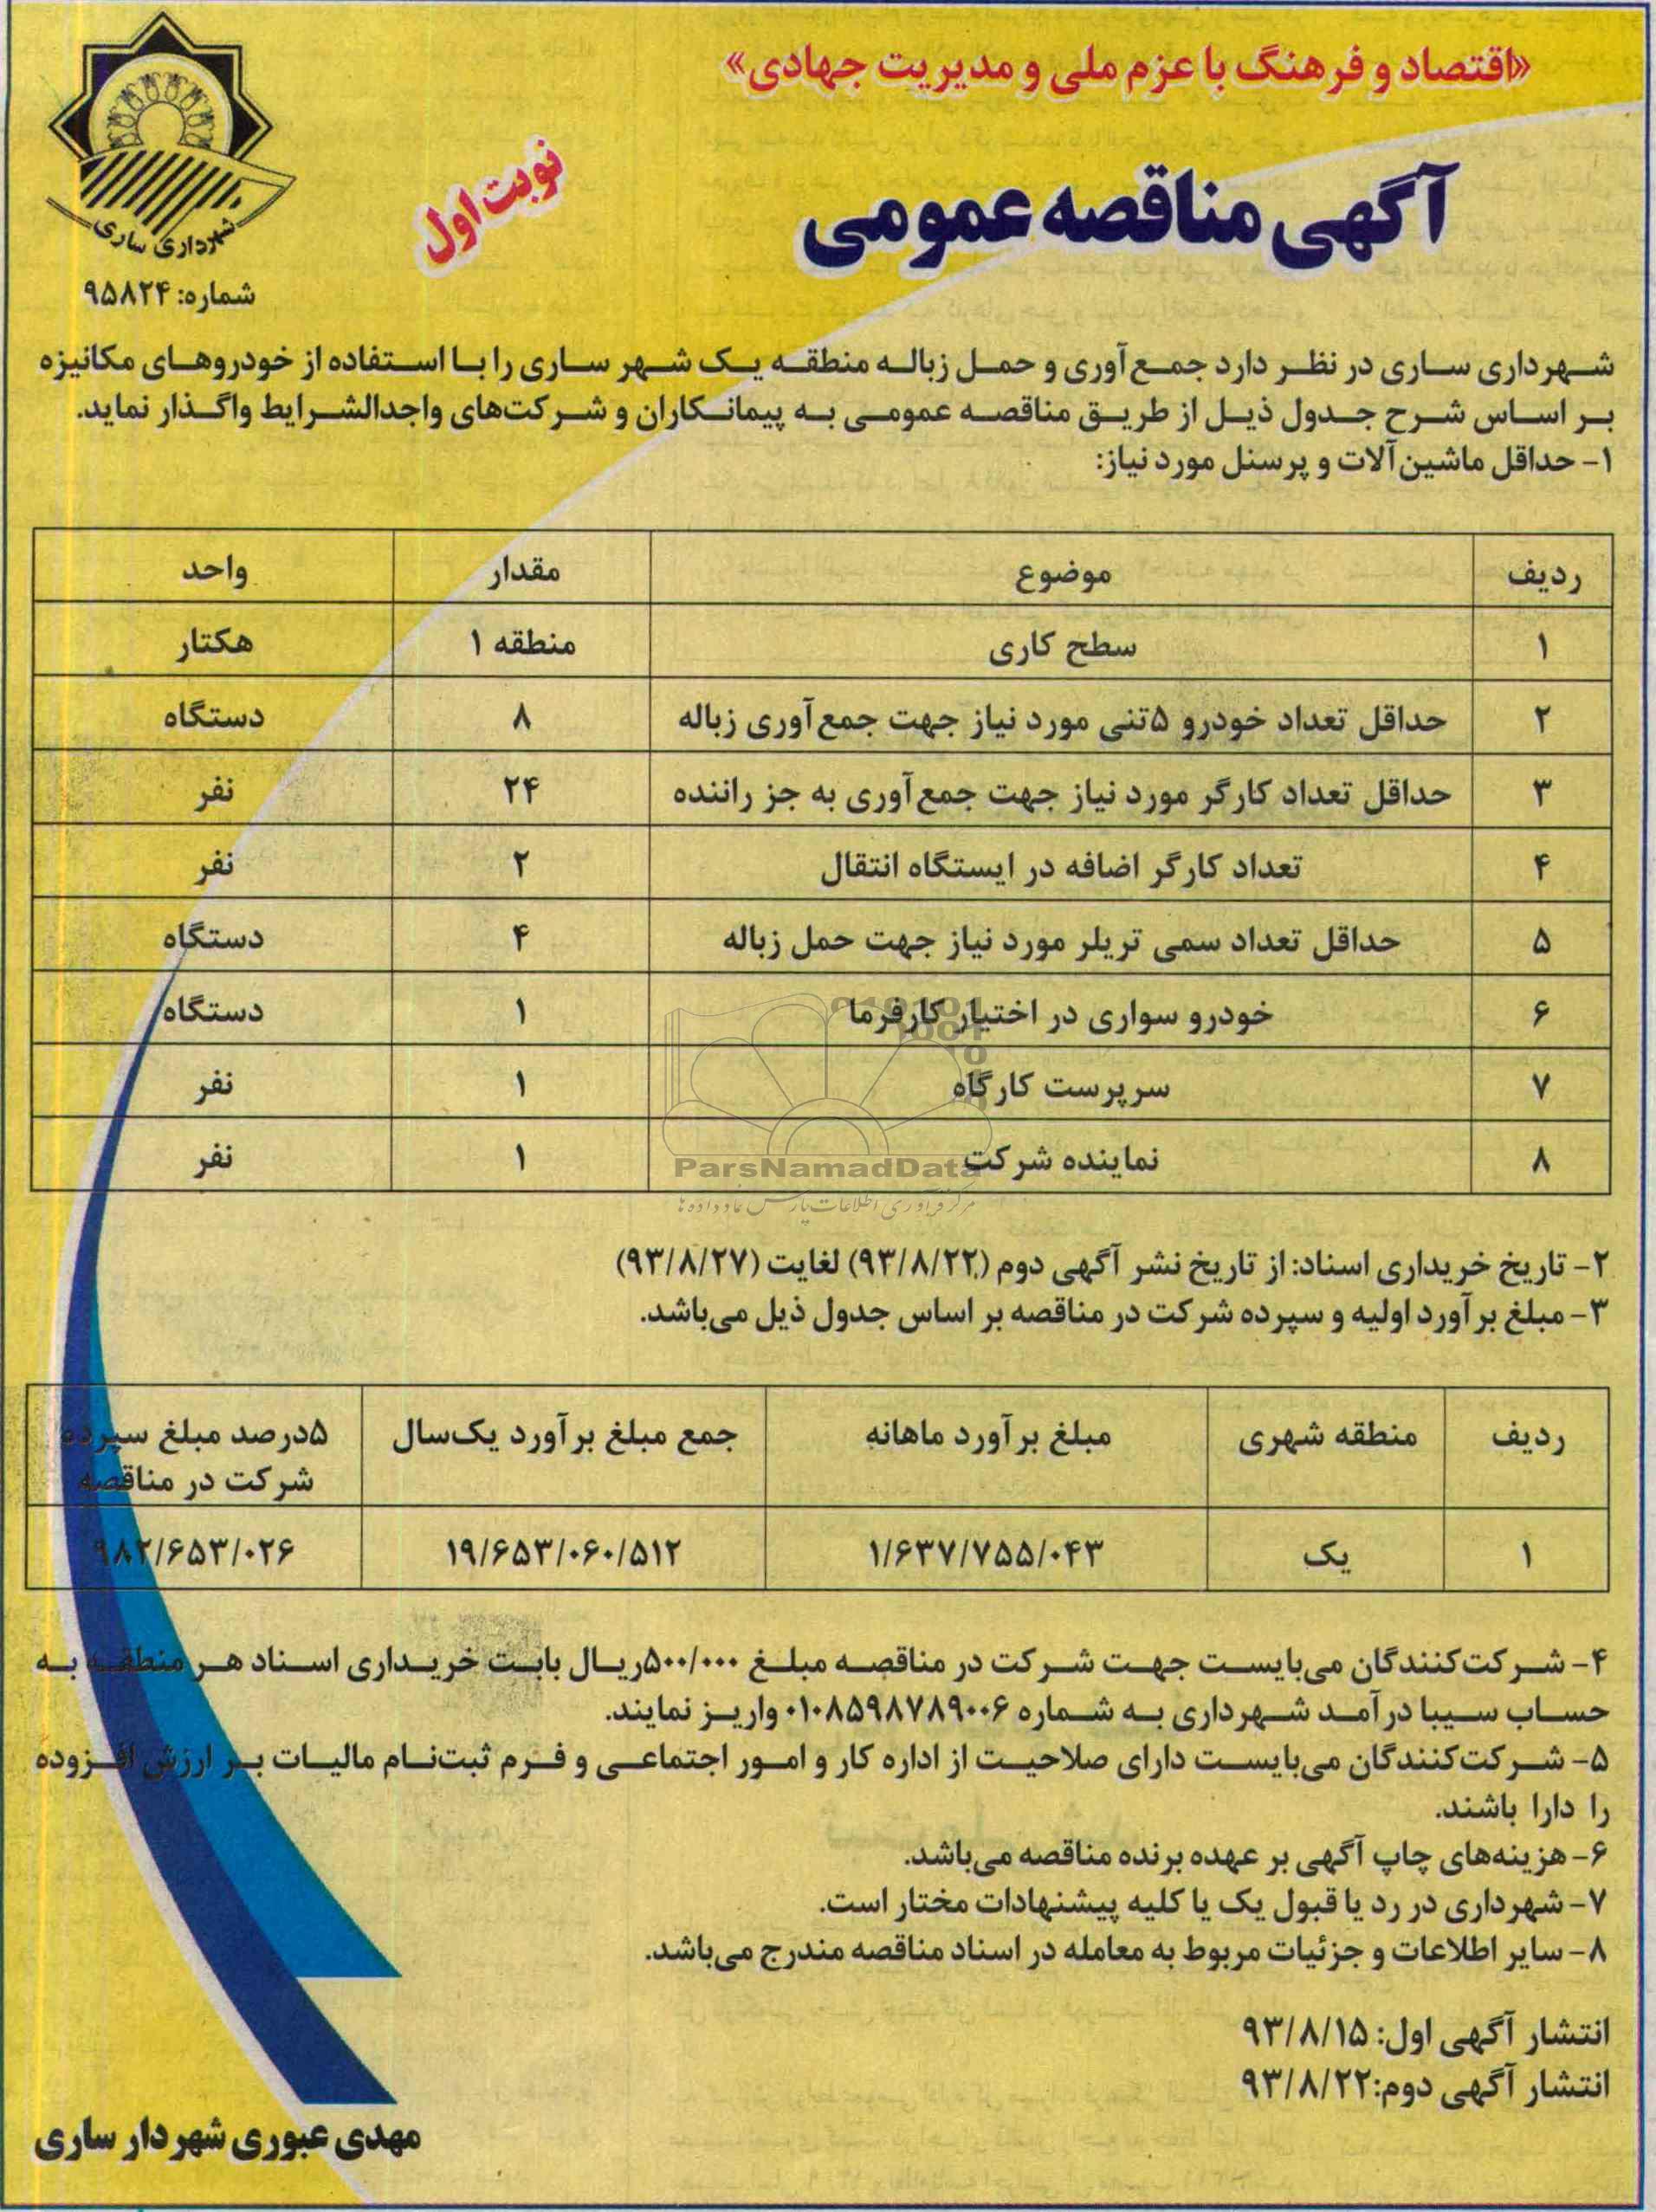 «اقتصاد و فرهنگ با عزم ملی و مدیریت جهادی»
آگهی مناقصه عمومی
نوبت اول
شهرداری ساری
شماره: ۹۵۸۲۴
شهرداری ساری در نظر دارد جمع‌آوری و حمل زباله منطقه یک شهر ساری را با استفاده از خودروهای مکانیزه
بر اساس شرح جدول ذیل از طریق مناقصه عمومی به پیمانکاران و شرکت‌های واجدالشرایط واگذار نماید.
۱- حداقل ماشین‌آلات و پرسنل مورد نیاز:
ردیف موضوع مقدار واحد
۱ سطح کاری منطقه ۱ هکتار
۲ حداقل تعداد خودرو ۵تنی مورد نیاز جهت جمع‌آوری زباله ۸ دستگاه
۳ حداقل تعداد کارگر مورد نیاز جهت جمع‌آوری به جز راننده ۲۴ نفر
۴ تعداد کارگر اضافه در ایستگاه انتقال ۲ نفر
۵ حداقل تعداد سمی تریلر مورد نیاز جهت حمل زباله ۴ دستگاه
۶ خودرو سواری در اختیار کارفرما ۱ دستگاه
۷ سرپرست کارگاه ۱ نفر
۸ نماینده شرکت ۱ نفر
ParsNamadData
مرکز فرآوری اطلاعات پارس نماد داده ها
۲- تاریخ خریداری اسناد: از تاریخ نشر آگهی دوم (۹۳/۸/۲۲) لغایت (۹۳/۸/۲۷)
۳- مبلغ برآورد اولیه و سپرده شرکت در مناقصه بر اساس جدول ذیل می‌باشد.
ردیف منطقه شهری مبلغ برآورد ماهانه جمع مبلغ برآورد یک‌سال ۵درصد مبلغ سپرده
شرکت در مناقصه
۱ یک ۱/۶۳۷/۷۵۵/۰۴۳ ۱۹/۶۵۳/۰۶۰/۵۱۲ ۹۸۲/۶۵۳/۰۲۶
۴- شرکت‌کنندگان می‌بایست جهت شرکت در مناقصه مبلغ ۵۰۰/۰۰۰ریال بابت خریداری اسناد هر منطقه به
حساب سیبا درآمد شهرداری به شماره ۰۱۰۸۵۹۸۷۸۹۰۰۶ واریز نمایند.
۵- شرکت‌کنندگان می‌بایست دارای صلاحیت از اداره کار و امور اجتماعی و فرم ثبت‌نام مالیات بر ارزش افزوده
را دارا باشند.
۶- هزینه‌های چاپ آگهی بر عهده برنده مناقصه می‌باشد.
۷- شهرداری در رد یا قبول یک یا کلیه پیشنهادات مختار است.
۸- سایر اطلاعات و جزئیات مربوط به معامله در اسناد مناقصه مندرج می‌باشد.
انتشار آگهی اول: ۹۳/۸/۱۵
انتشار آگهی دوم:۹۳/۸/۲۲
مهدی عبوری شهردار ساری